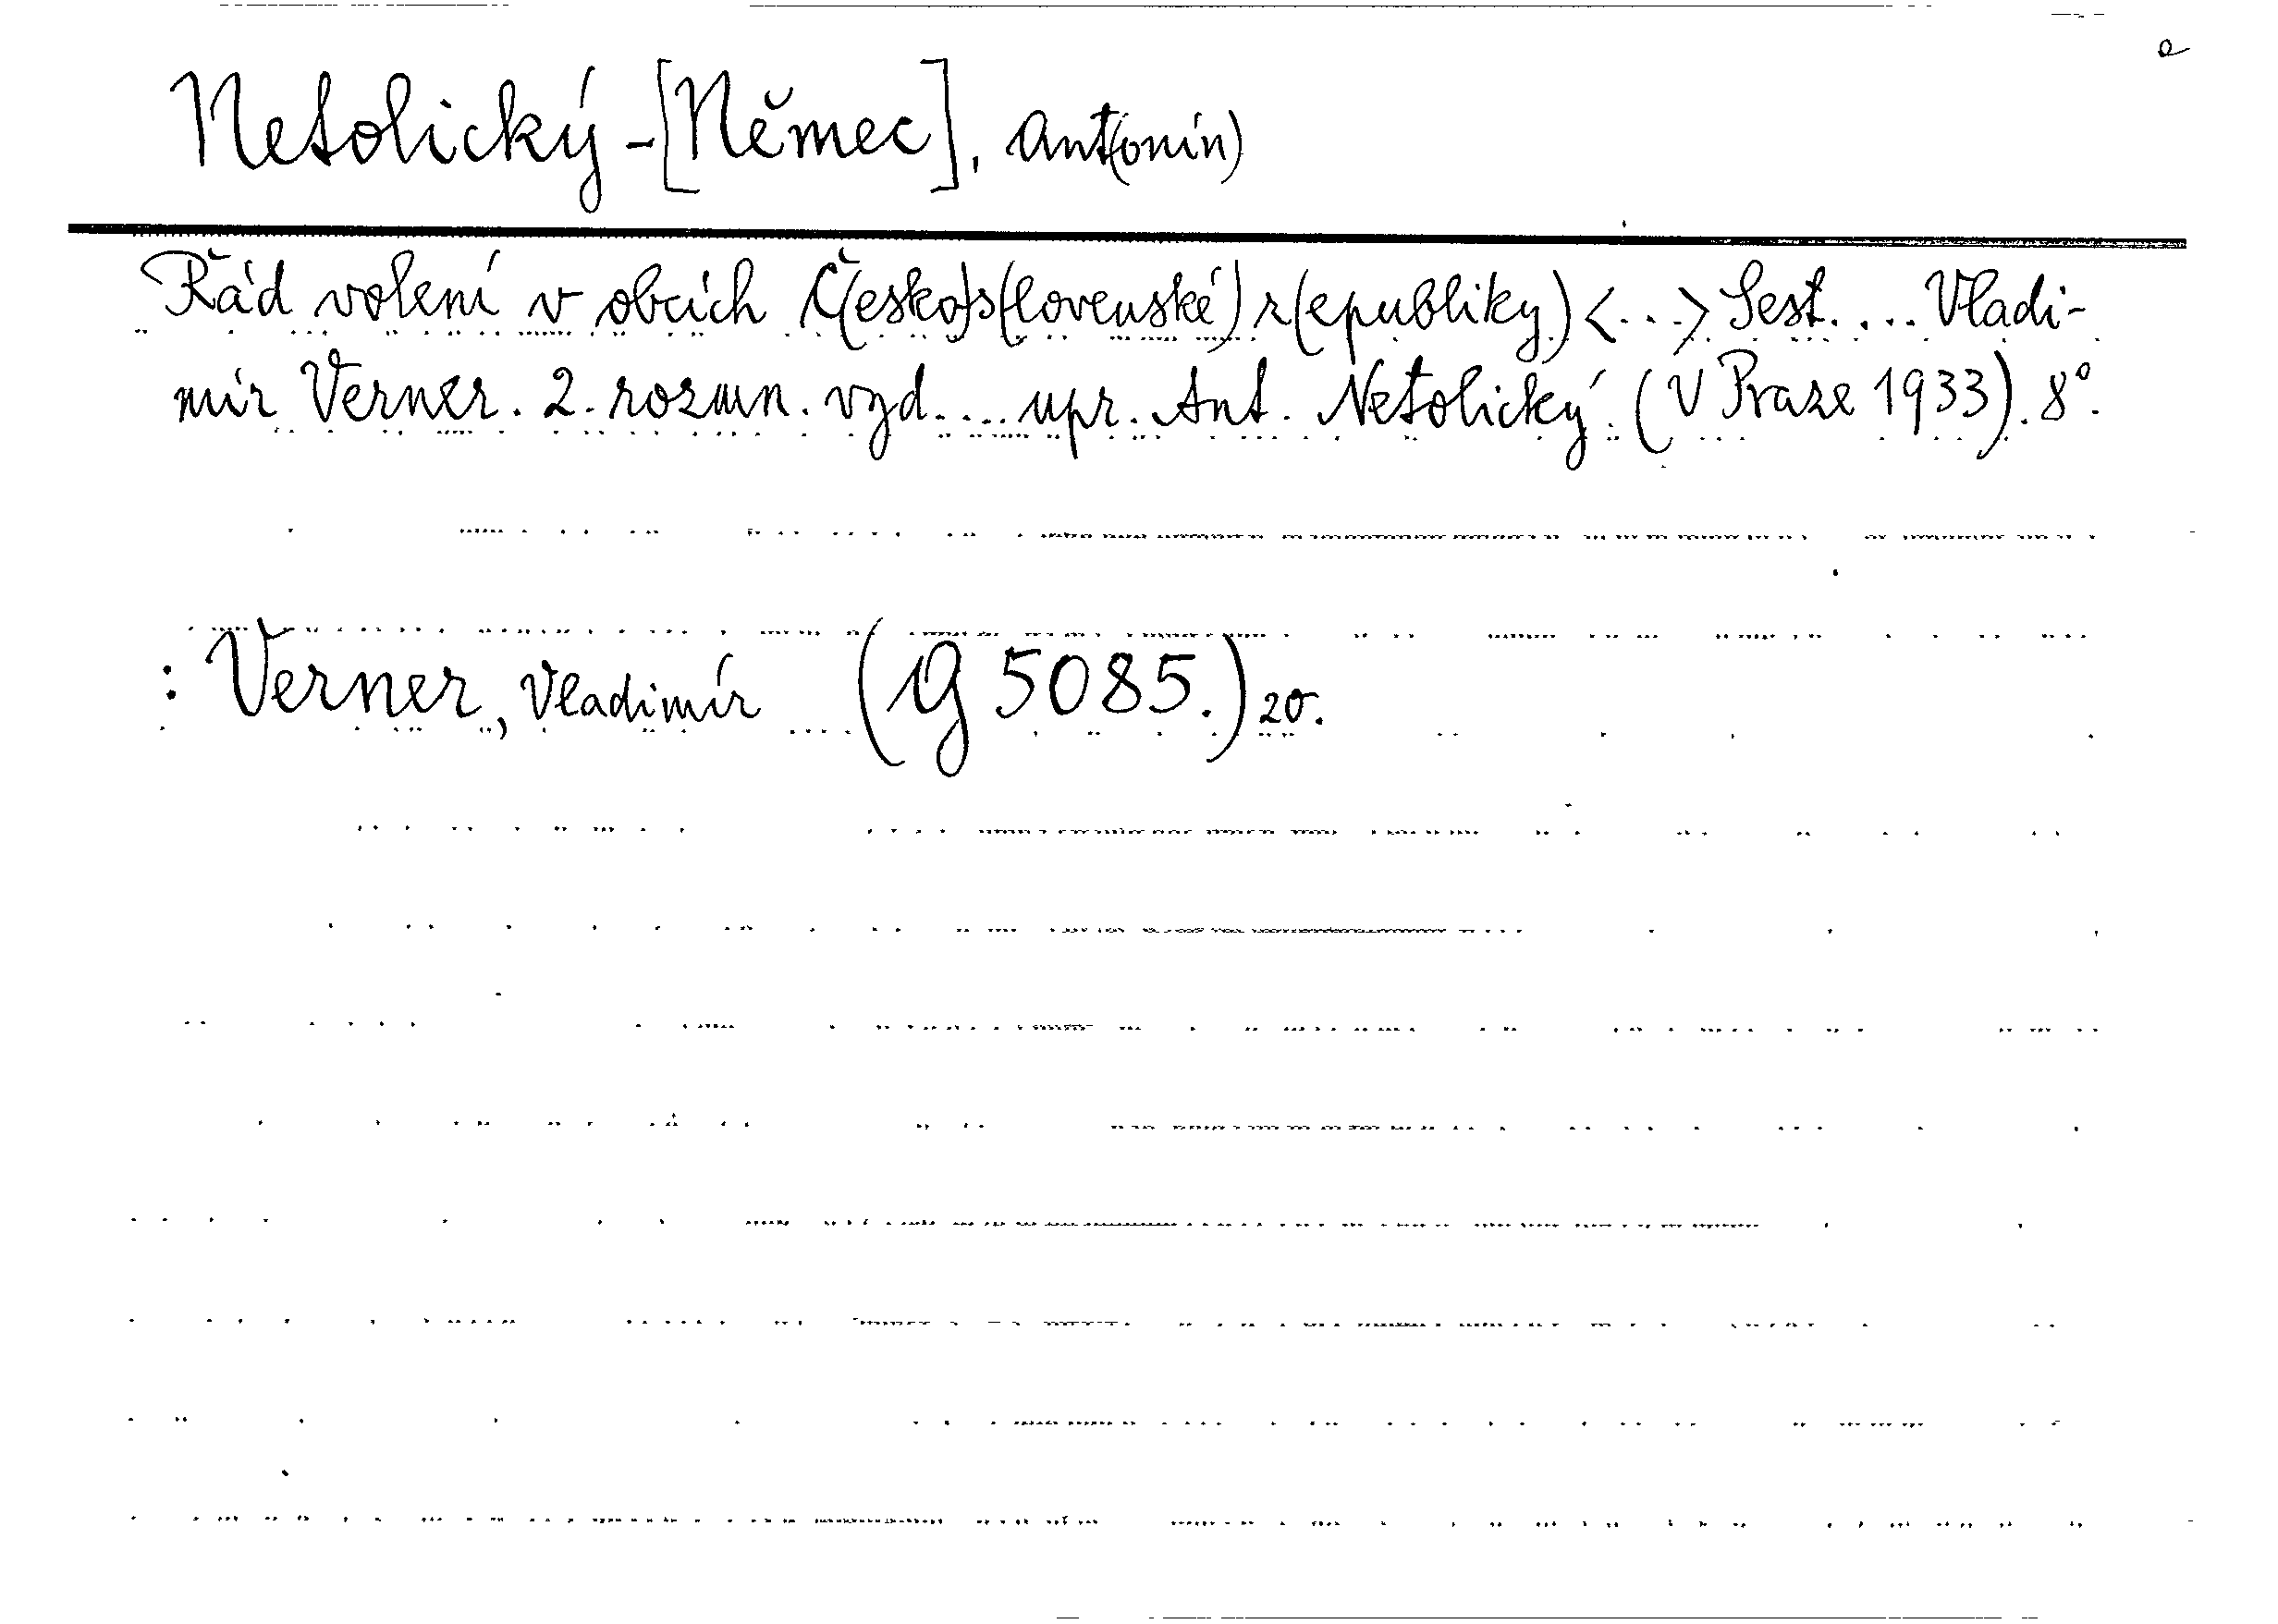 e
Netolický-[Němec], Ant(onín)
Řád volení v obcích Č(esko)s(lovenské) r(epubliky) <...> Sest. ... Vladi-
mír Verner. 2. rozmn. vyd. ... upr. Ant. Netolický. (V Praze 1933). 8°.
: Verner, Vladimír (G 5085.)